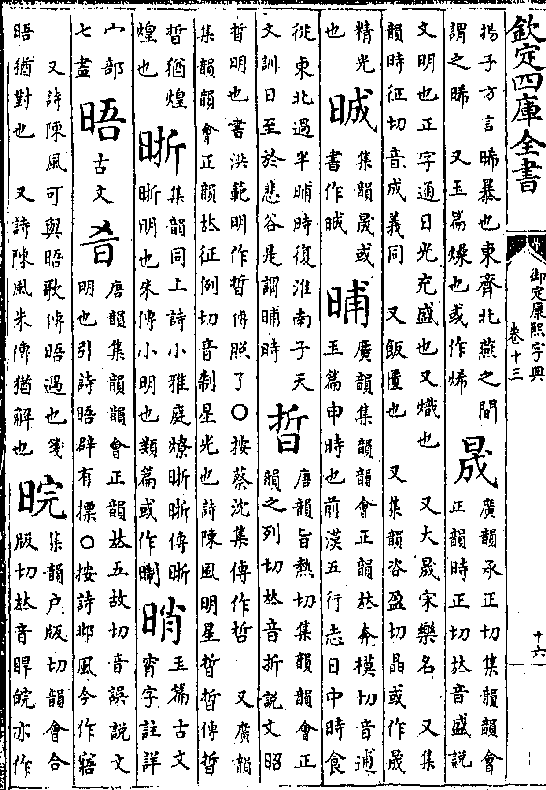 欽定四庫全書
御定康熙字典
卷十三
十六
揚子方言晞暴也東齊北燕之間
謂之晞 又玉篇燥也或作烯
晟
廣韻承正切集韻韻會
正韻時正切𠀤音盛說
文明也正字通日光充盛也又熾也 又大晟宋樂名 又集
韻時征切音成義同 又飯匱也 又集韻咨盈切晶或作晟
精光
也
晠
集韻晟或
書作晠
晡
廣韻集韻韻會正韻𠀤奔模切音逋
玉篇申時也前漢五行志日中時食
從東北過半晡時復淮南子天
文訓日至於悲谷是謂晡時
晢
唐韻旨熱切集韻韻會正
韻之列切𠀤音折說文昭
晢明也書洪範明作晢傳照了○按蔡沈集傳作哲 又廣韻
集韻韻會正韻𠀤征例切音制星光也詩陳風明星晢晢傳晢
晢猶煌
煌也
晣
集韻同上詩小雅庭燎晣晣傳晣
晣明也朱傳小明也類篇或作
玉篇古文
宵字註詳
宀部
七畫
晤
古文
唐韻集韻韻會正韻𠀤五故切音誤說文
明也引詩晤辟有摽○按詩邶風今作寤
又詩陳風可與晤歌傳晤遇也箋
晤猶對也 又詩陳風朱傳猶解也
晥
集韻戶版切韻會合
版切𠀤音睅皖亦作